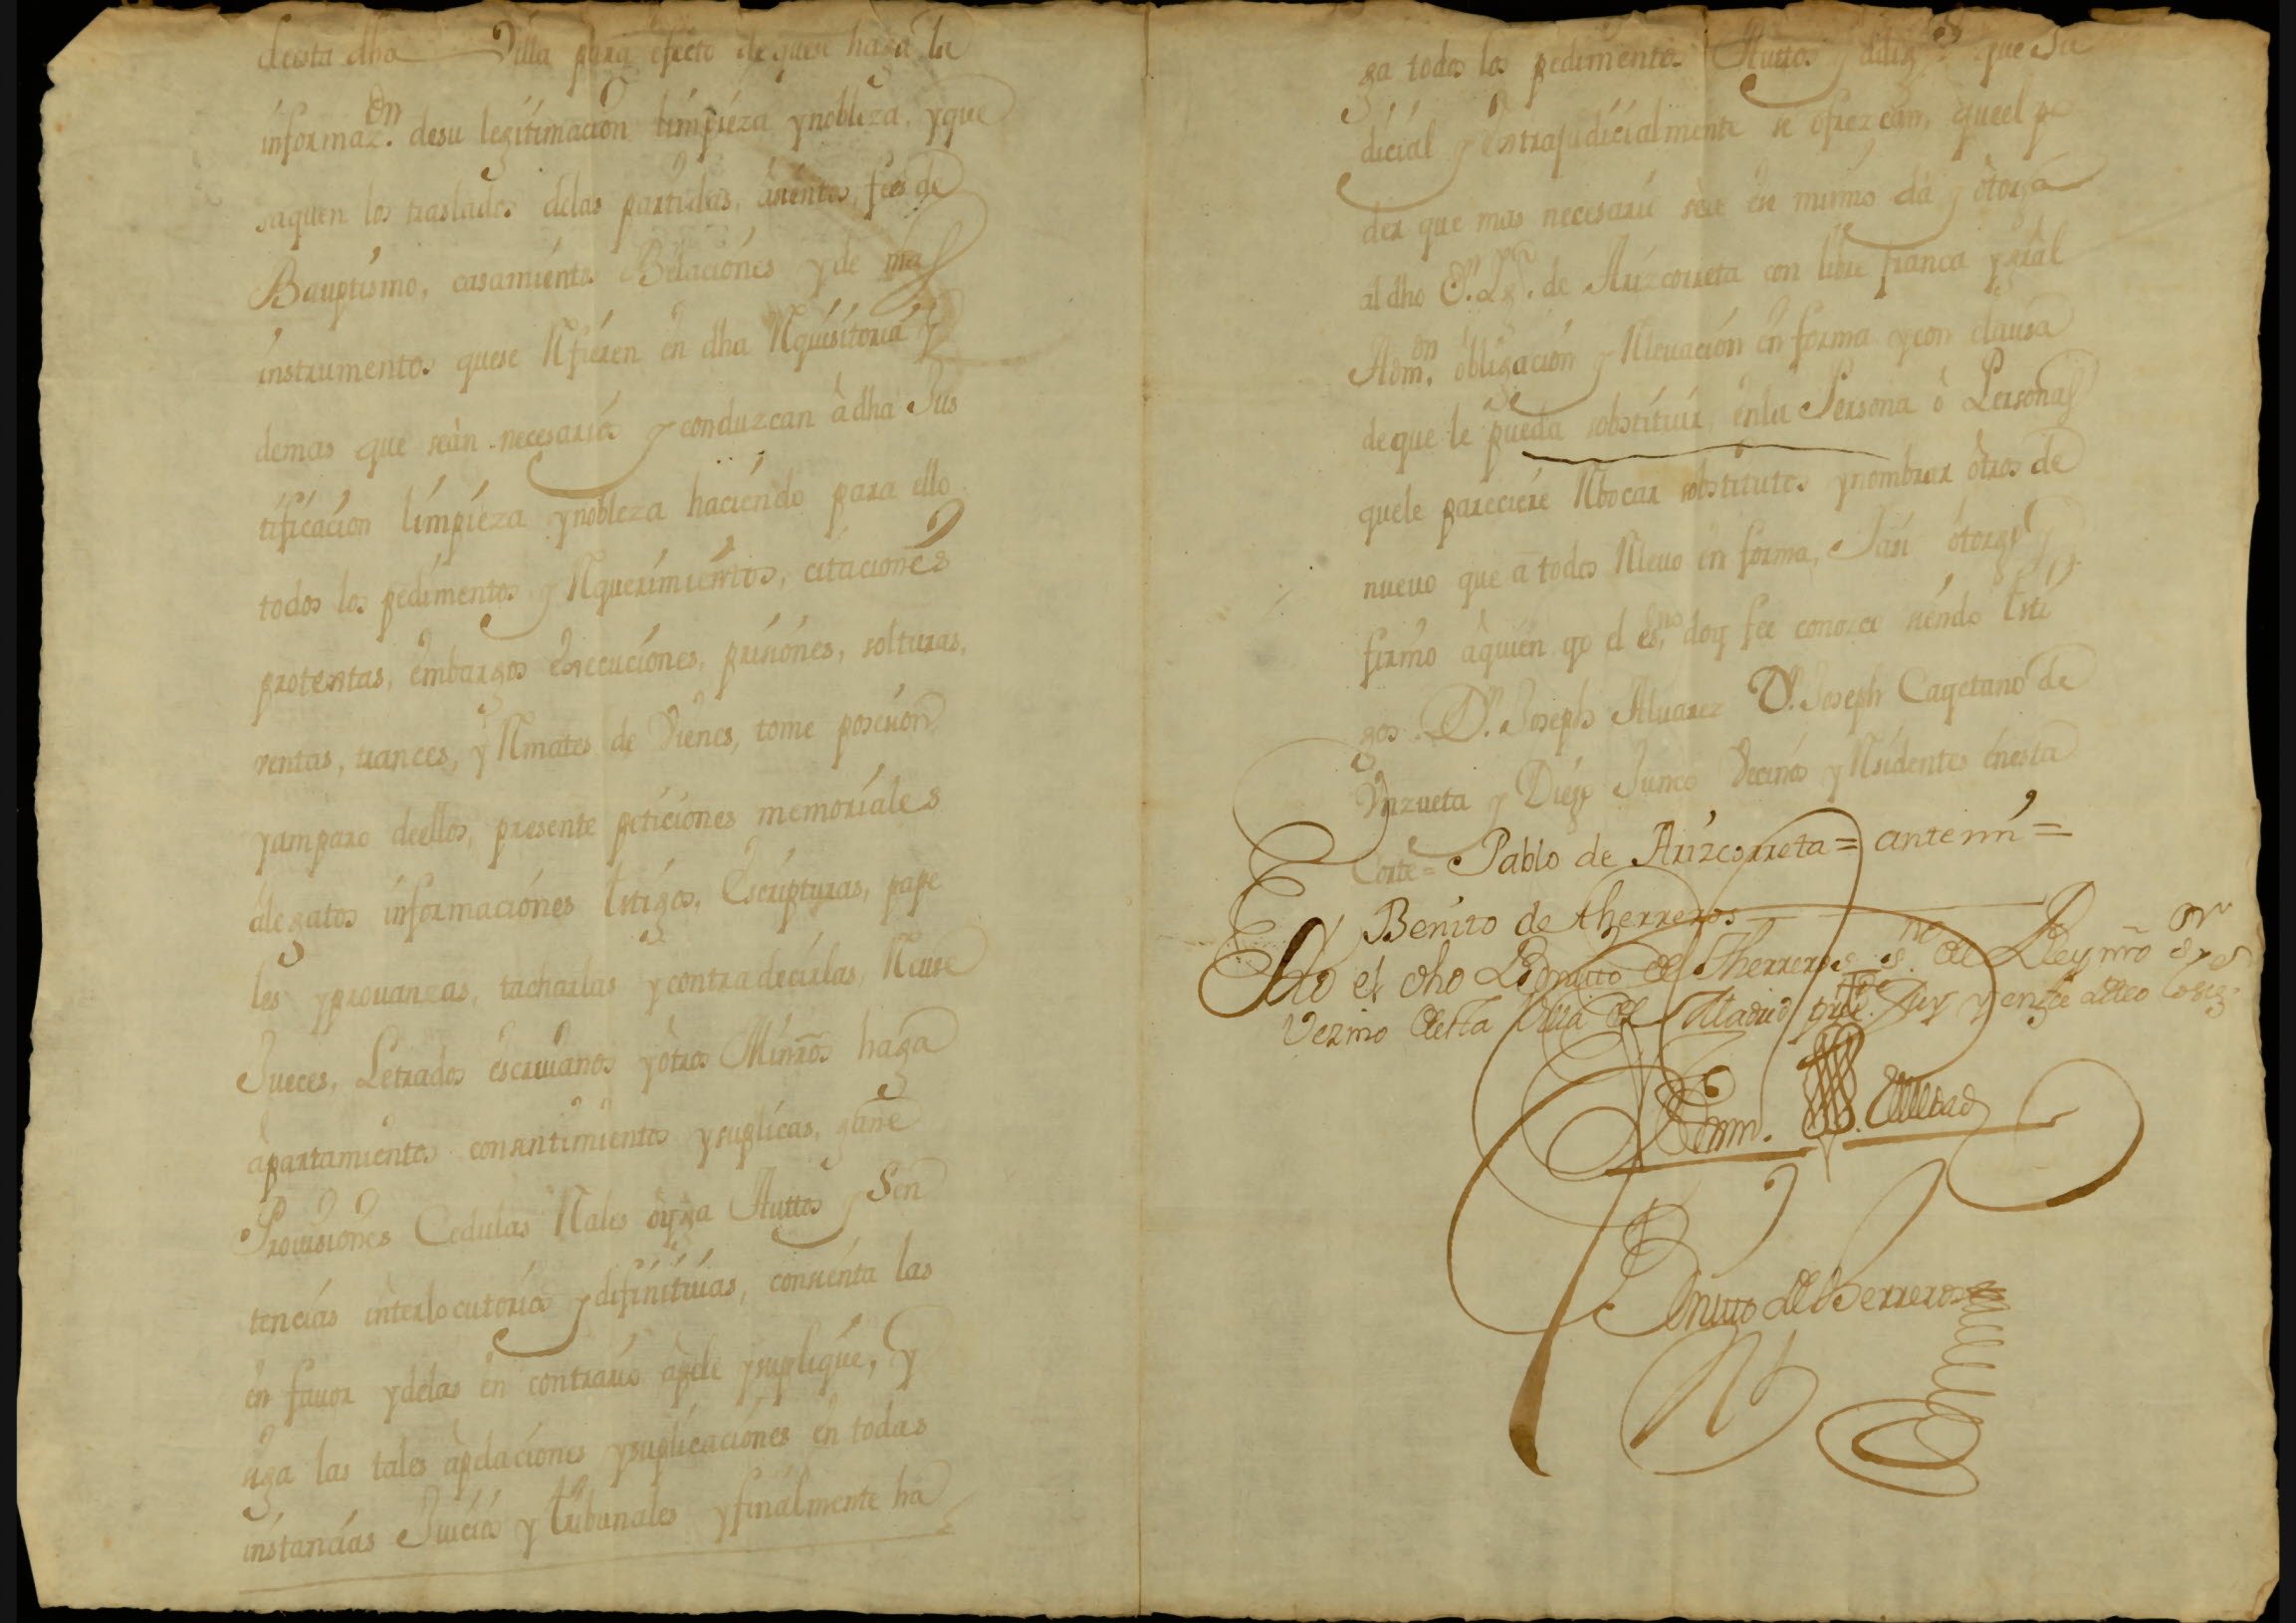 desta dha Villa para efecto de quese haga la
informaz.on desu legitimacion limpieza ynobleza, yque
saquen los traslados delas partidas, asientos, fees de
Bauptismo, casamientos Belaciones yde mas
instrumentos quese Rfieren en dha Rquisitoria y
demas que seàn necesarios y conduzcan àdha Jus
tificacion limpieza ynobleza haciendo para ello
todos los pedimentos y Rquerimientos, citaciones
protextas, embargos execuciones, prisiones, solturas,
ventas, trances, y Rmates de Vienes, tome posesion
yamparo deellos, presente peticiones memoriales
alegatos informaciones testigos, Escripturas, pape
les yprouanzas, tacharlas ycontradecirlas, Rcuse
Jueces, Letrados escriuanos yòtros Minros haga
apartamientos consentimientos ysuplicas, gane
Prouisiones Cedulas Rales oyga Auttos y Sen
tencias interlocutorias y difinitiuias, consienta las
en fauor ydelas en contrario àpele ysuplique, y
siga las tales àpelaciones ysuplicaciones en todas
instancias Juicios y tribunales yfinalmente ha
ga todos los pedimentos Auttos y dilig.s que Ju
dicial y Extrajudicialmente se ofrezcan, queel po
der que mas necesario sèa ese mismo dà y òtorga
al dho D.n de Arizcorreta con libre franca y gral
Adm.on obligacion y Rleuacion en forma ycon clausa
deque le pueda sobstituir, enla Persona ò Personas
quele pareciere Rbocar sobstitutos ynombrar òtros de
nueuo que a todos Rleuo en forma, Jasi òtorgo y
firmo àquien yo el es.no doy fee conozco siendo testi
gos D.n Joseph Aluarez D.n Joseph Cayetano de
Vnzueta y Diego Junco Vecinos y Rsidentes enesta
Corte = Pablo de Arizcorreta = antemi =
Benito de therreros
Yo el dho Benito de therreros es.no del Rey nro s.or
Vezino desta Villa de Madrid pres.te fuy y enfee dello lo sig.
Benito de therreros